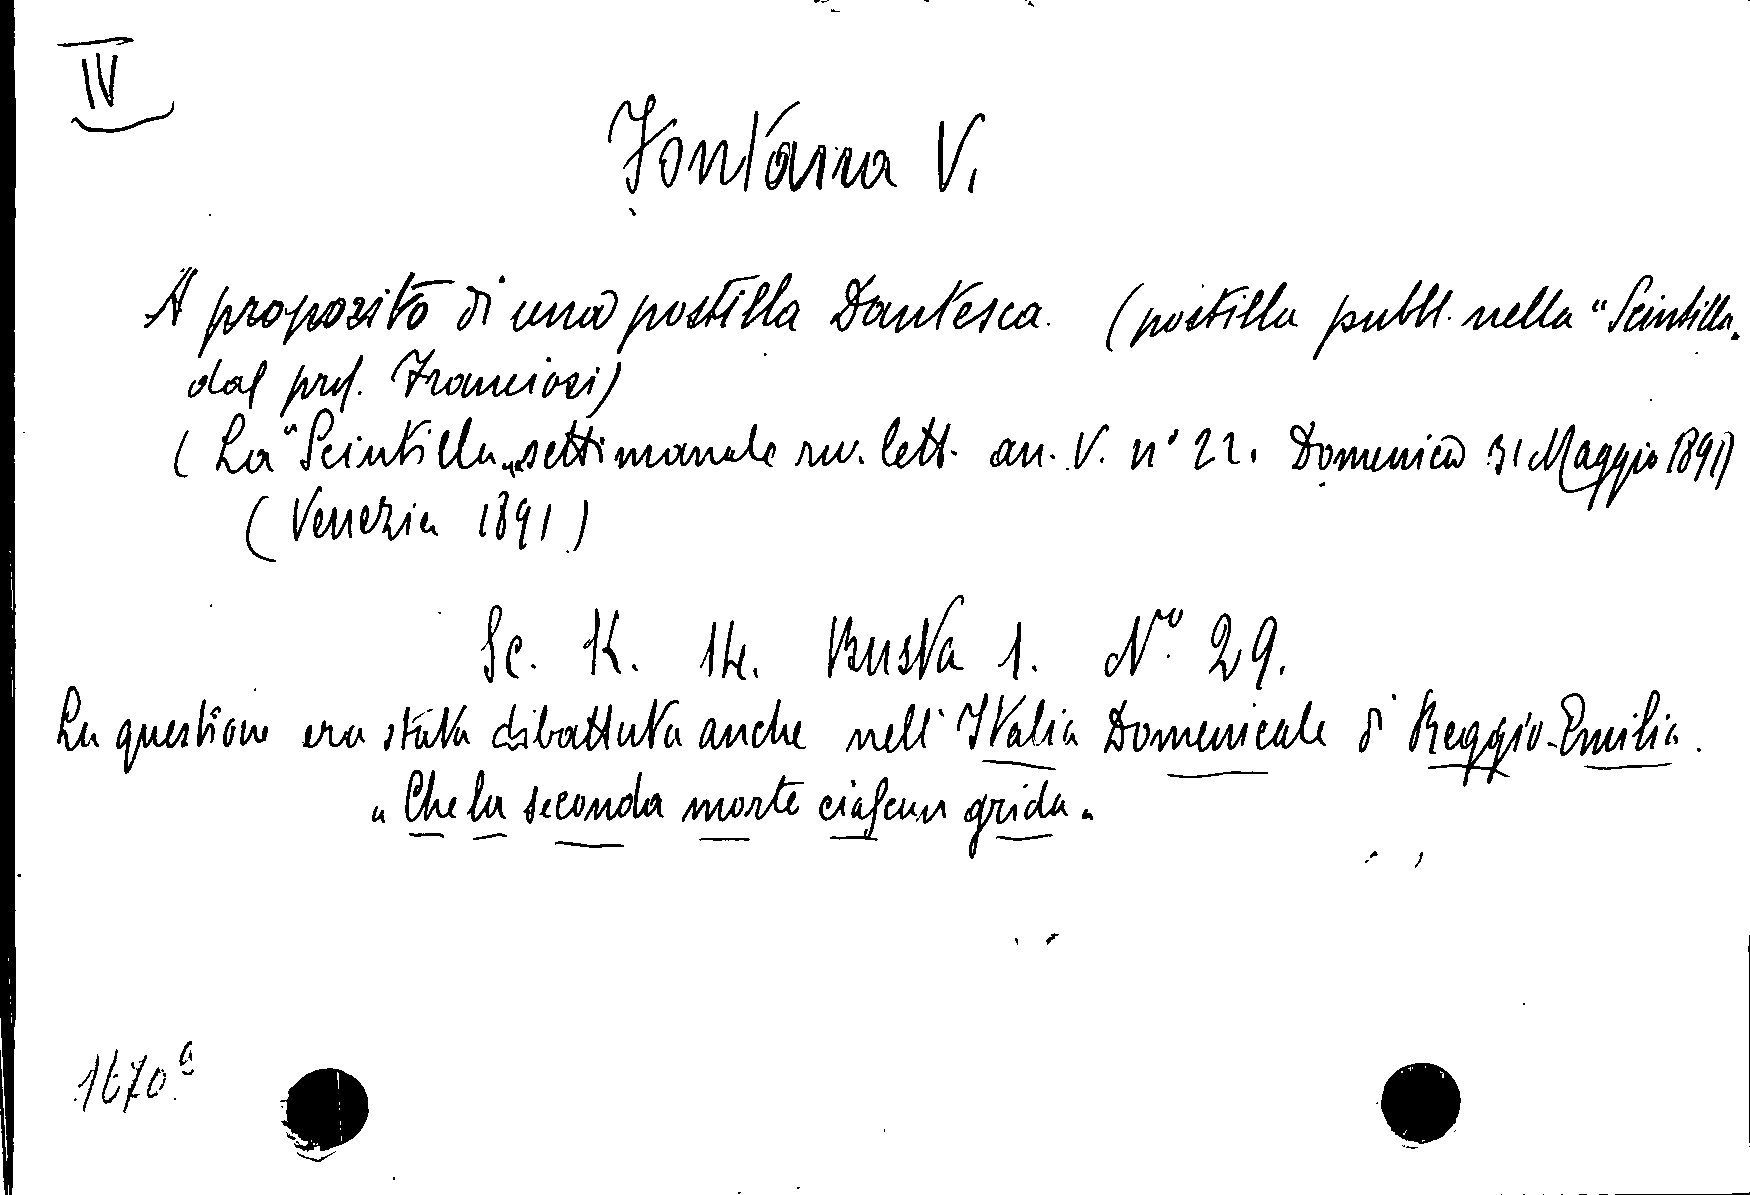 IV
Fontana V.
A proposito di una postilla Dantesca. (postilla pubbl. nella "Scintilla„
dal prof. Franciosi)
(La "Scintilla„ settimanale riv. lett. an. V. n° 22. Domenica 31 Maggio 1891)
(Venezia 1891)
Sc. K. 14. Busta 1. N° 29.
La questione era stata dibattuta anche nell' Italia Domenicale di Reggio-Emilia.
"Che la seconda morte ciascun grida„
1670a